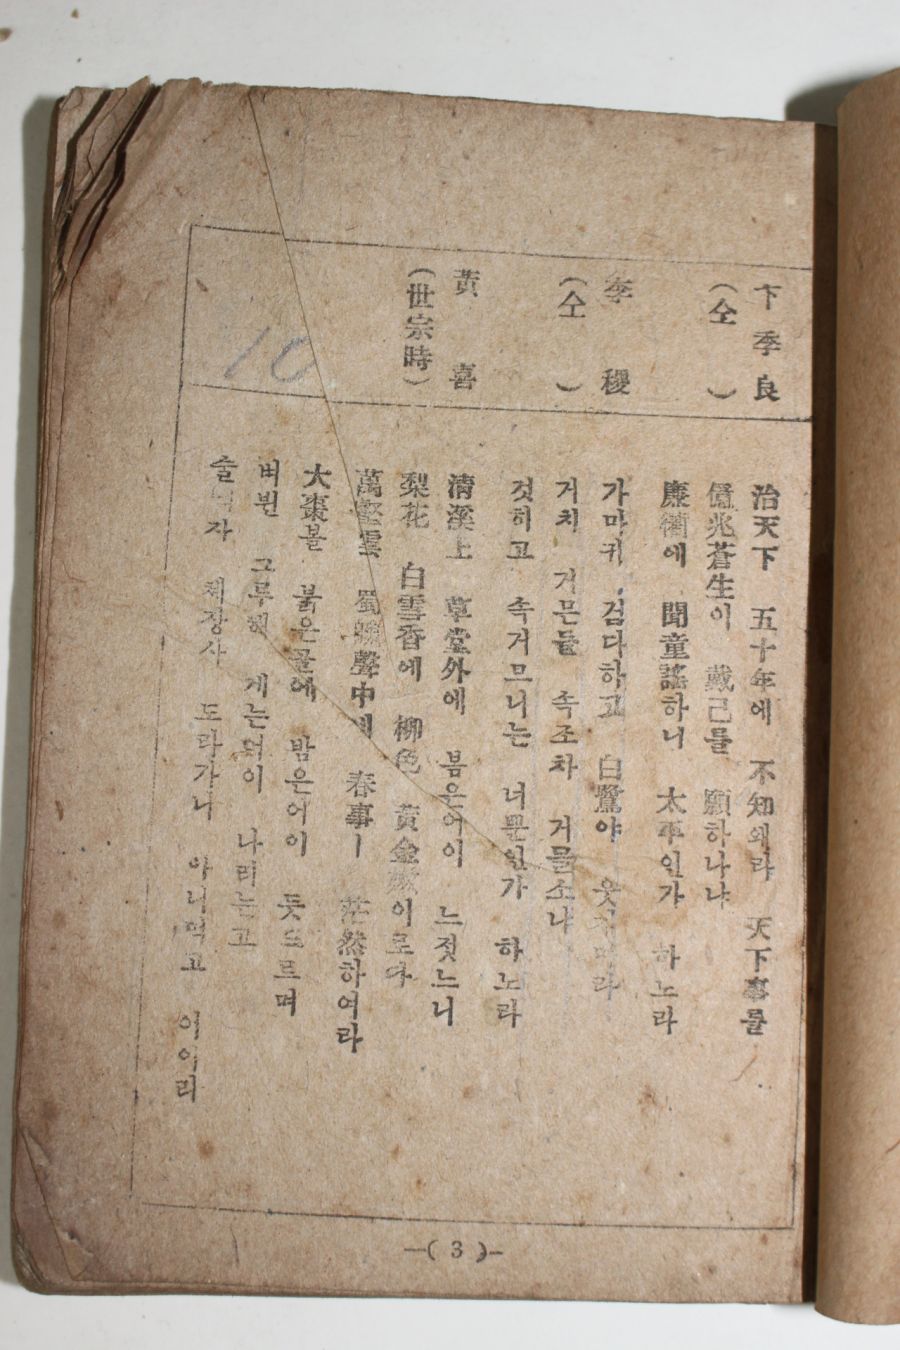 卞季良
(仝 )
治天下 五十年에 不知왜라 天下事를
億兆蒼生이 戴己를 願하나냐
康衢에 聞童謠하니 太平인가 하노라
李 稷
(仝 )
가마귀 검다하고 白鷺야 웃지마라
거치 거믄들 속조차 거믈소냐
것히고 속거므니는 너뿐인가 하노라
黃 喜
(世宗時)
清溪上 草堂外에 봄은어이 느젓느니
梨花 白雪香에 柳色 黃金嫩이로다
萬壑雲 蜀魄聲中에 春事ㅣ 茫然하여라
大棗볼 붉은골에 밤은어이 듯드르며
벼뷘 그루헤 게는어이 나리는고
술먹자 체장사 도라가니 아니먹고 어이리
10
—( 3 )—